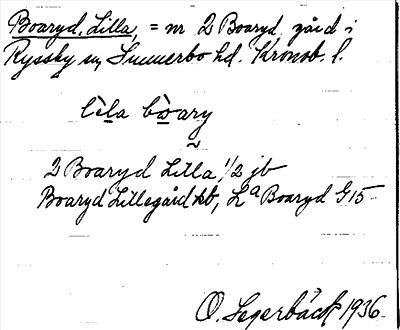 Boaryd, Lilla, = nr 2 Boaryd, gård i
Ryssby sn, Sunnerbo hd. Kronob. l.
lìla bòary
2 Boaryd Lilla 1/2 jb
Boaryd Lillegård kb, La Boaryd G15
O. Segerbäck 1936